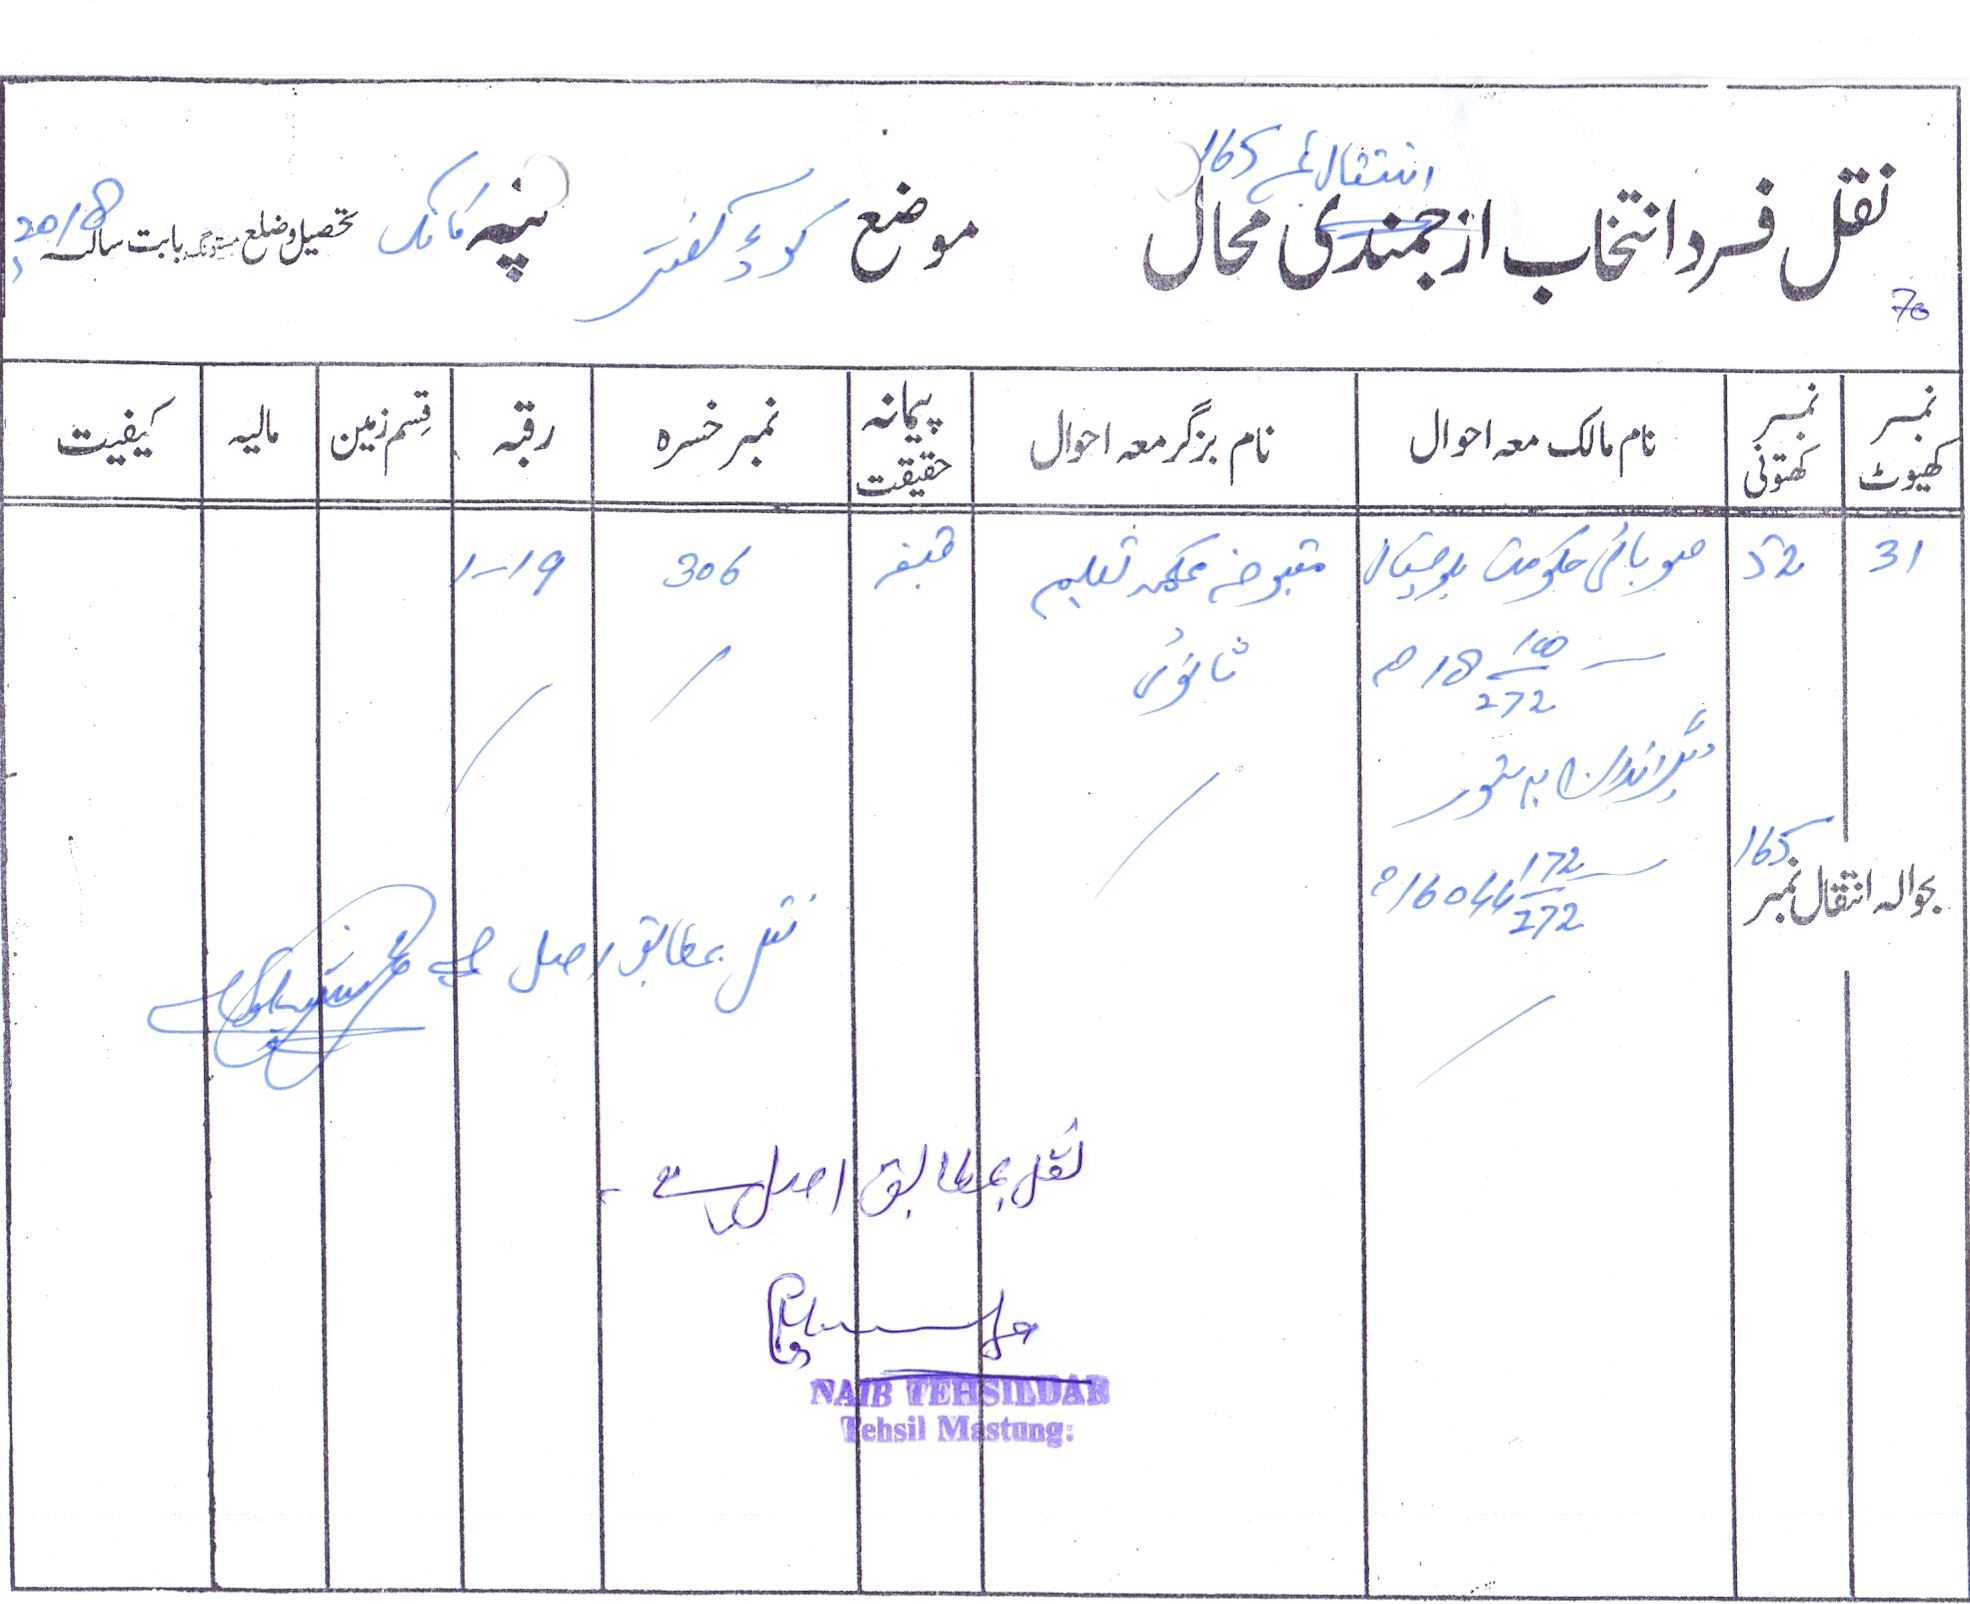 انتقال نمبر 165
نقل فرد انتخاب از جمندی محال موضع تپہ تحصیل و ضلع مستونگ بابت سالہ 2018
70
نمبر کھیوٹ
نمبر کھتونی
نام مالک معہ احوال
نام بزگر معہ احوال
پیمانہ حقیقت
نمبر خسرہ
رقبہ
قسم زمین
مالیہ
کیفیت
31 52 صوبائی حکومت بلوچستان مقبوضہ محکمہ تعلیم قبضہ 306 1-19
18 100/272 ثانوی
دیگر اندراج بدستور
165
بحوالہ انتقال نمبر
16044 172/272
نقل بمطابق اصل ہے
نقل بمطابق اصل ہے ۔
NAIB TEHSILDAR
Tehsil Mastung: